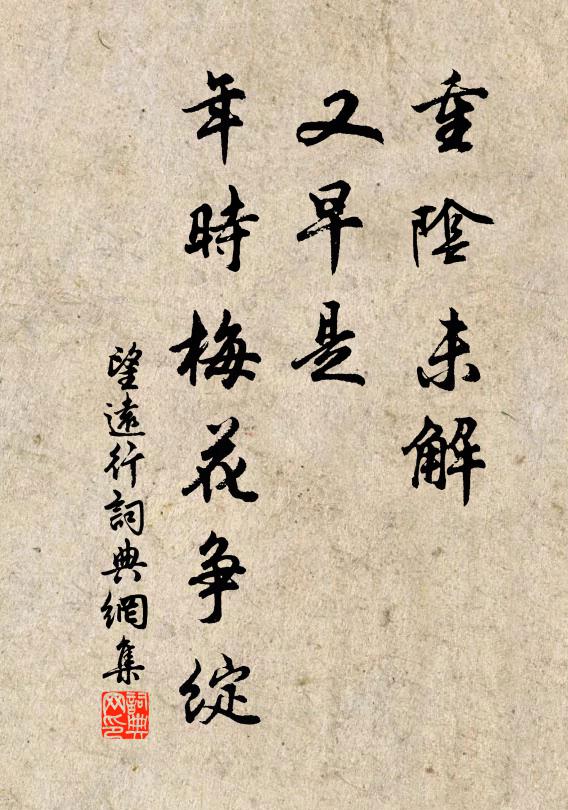 重陰未解
又早是
年時梅花争綻
望遠行詞典網集
詞典
网印